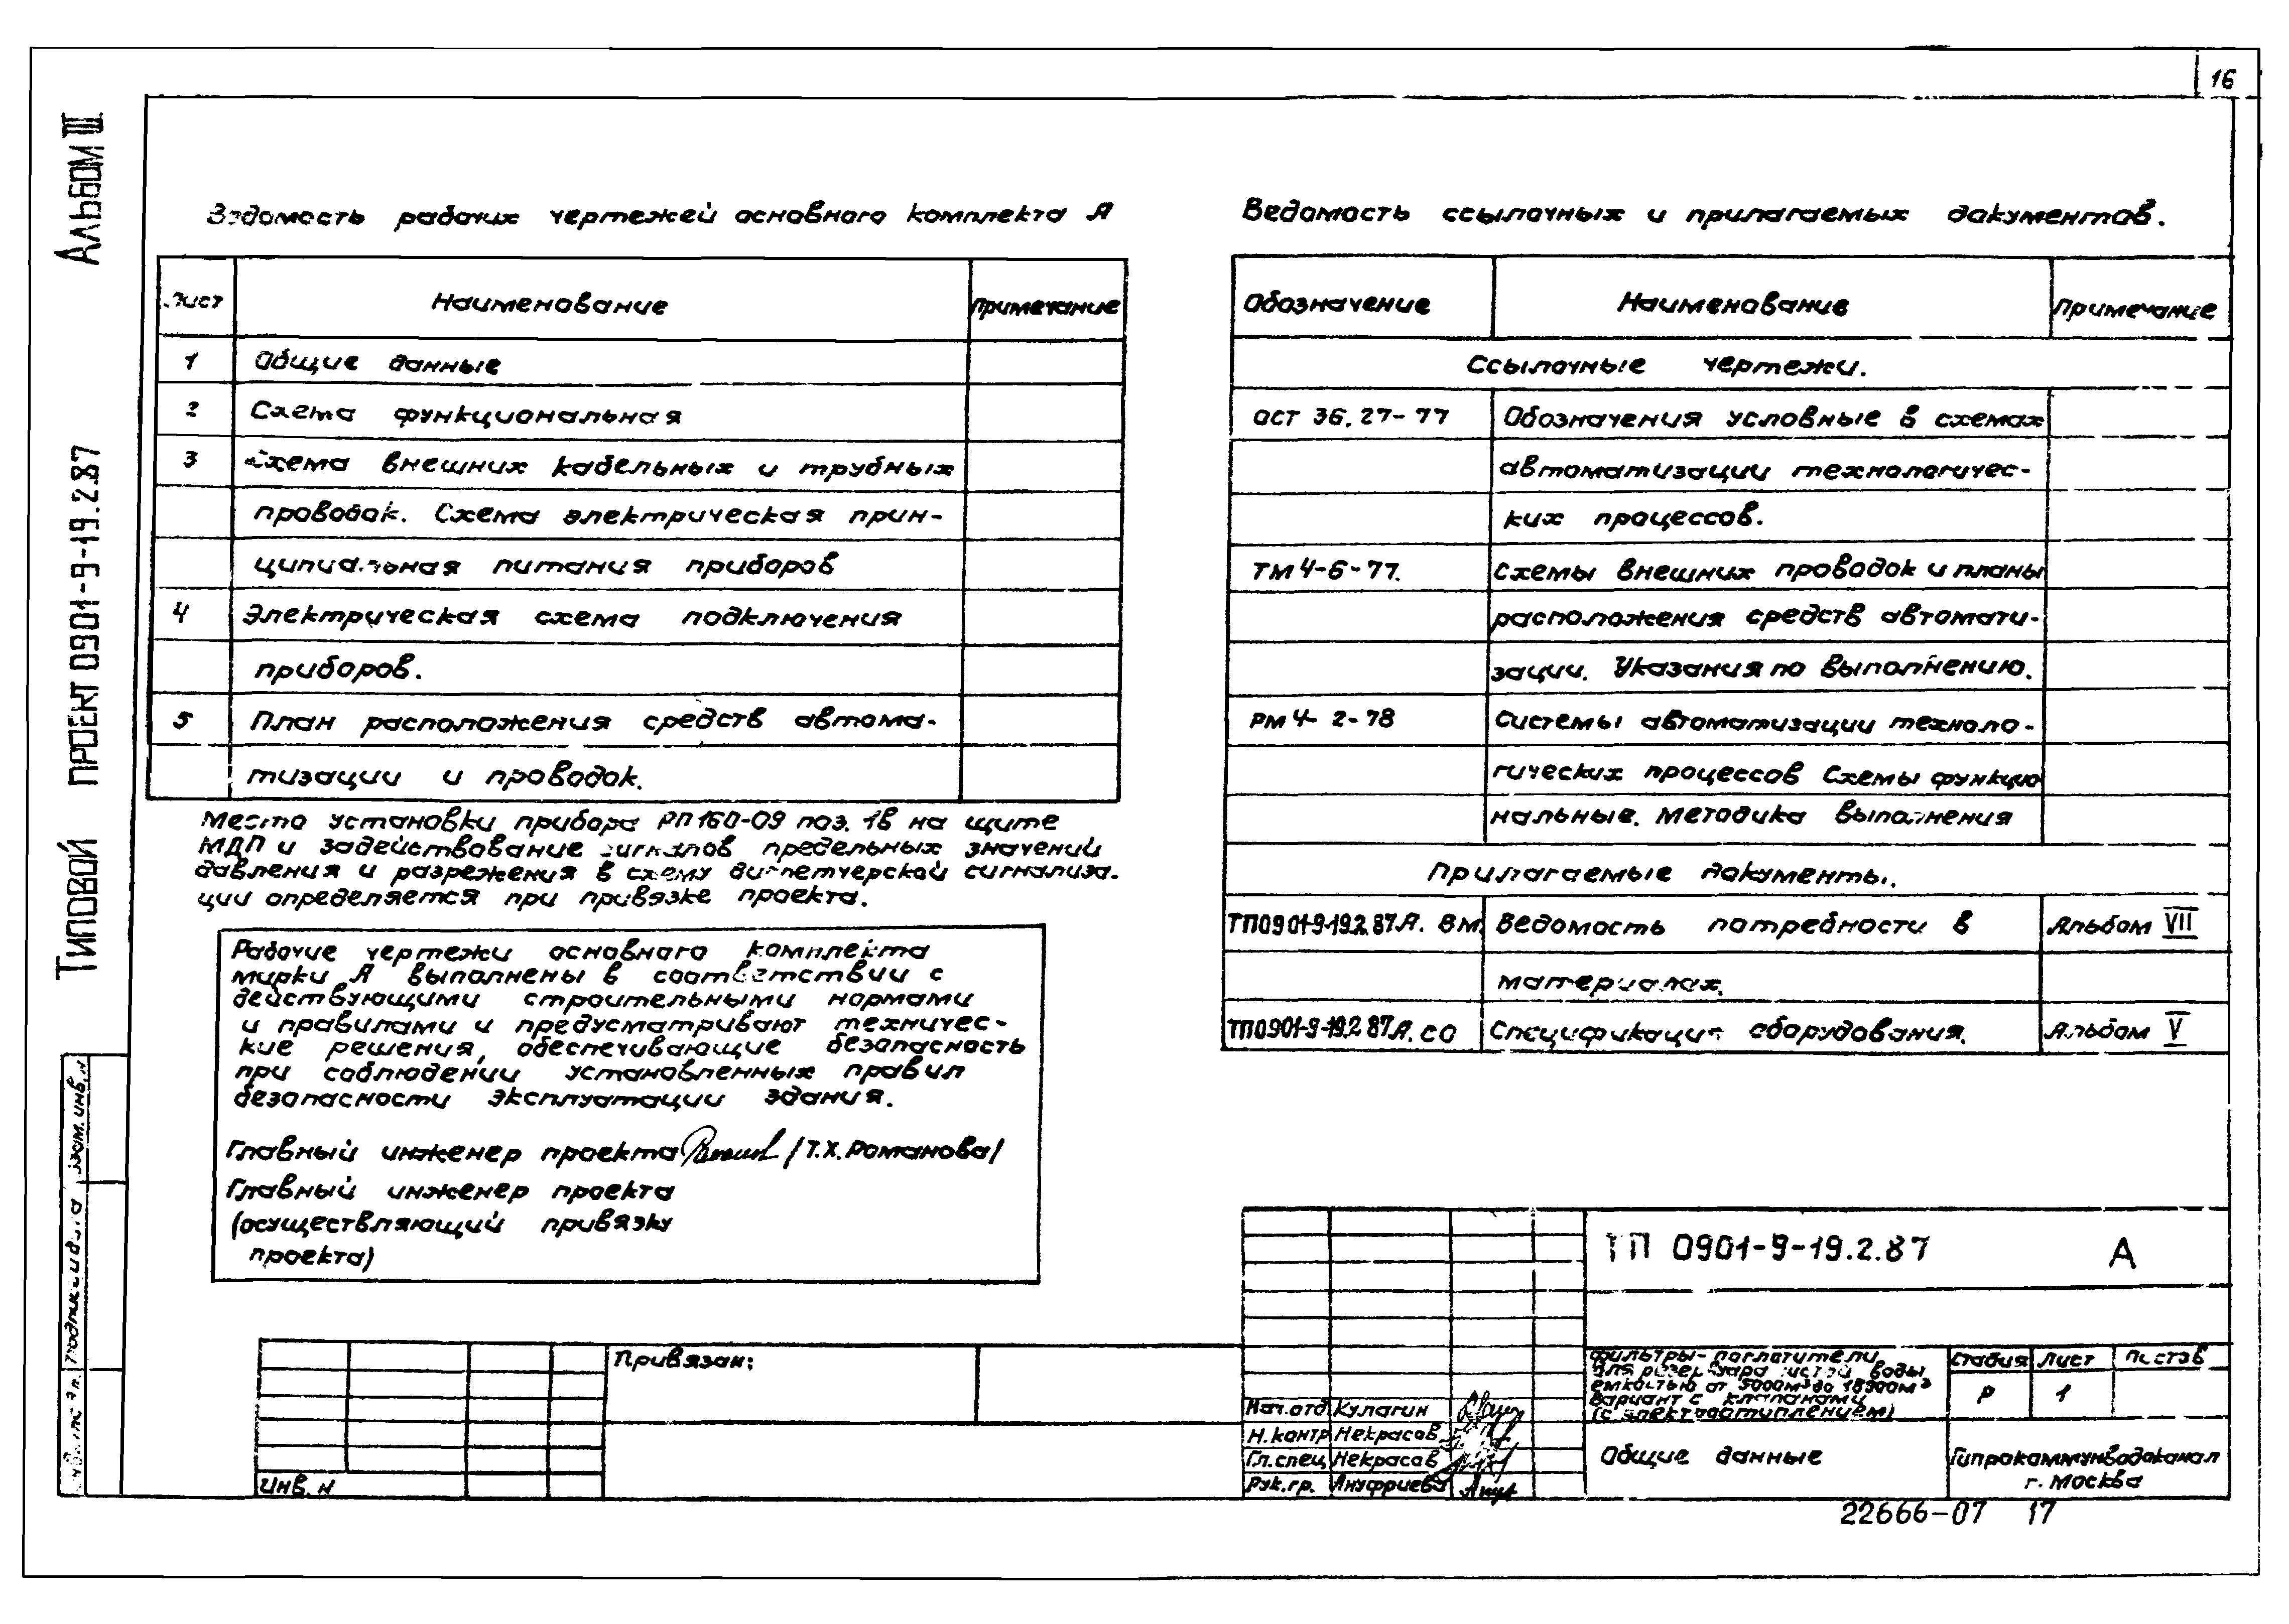 16
Альбом III
Типовой проект 0901-9-19.2.87
Ведомость рабочих чертежей основного комплекта А
Лист Наименование Примечание
1 Общие данные
2 Схема функциональная
3 Схема внешних кабельных и трубных
проводок. Схема электрическая прин-
ципиальная питания приборов
4 Электрическая схема подключения
приборов.
5 План расположения средств автома-
тизации и проводок.
Место установки прибора РП160-09 поз. 1в на щите
МДП и задействование сигналов предельных значений
давления и разрежения в схему диспетчерской сигнализа-
ции определяется при привязке проекта.
Рабочие чертежи основного комплекта
марки А выполнены в соответствии с
действующими строительными нормами
и правилами и предусматривают техничес-
кие решения, обеспечивающие безопасность
при соблюдении установленных правил
безопасности эксплуатации здания.
Главный инженер проекта /Т.Х. Романова/
Главный инженер проекта
(осуществляющий привязку
проекта)
Ведомость ссылочных и прилагаемых документов.
Обозначение Наименование Примечание
Ссылочные чертежи.
ОСТ 36.27-77 Обозначения условные в схемах
автоматизации технологичес-
ких процессов.
ТМ4-6-77. Схемы внешних проводок и планы
расположения средств автомати-
зации. Указания по выполнению.
РМ4-2-78 Системы автоматизации техноло-
гических процессов Схемы функцио
нальные. Методика выполнения
Прилагаемые документы.
ТП0901-9-19.2.87 А. ВМ Ведомость потребности в Альбом VII
материалах.
ТП0901-9-19.2 87 А. СО Спецификация оборудования. Альбом V
Взам. инв. N
Подпись и дата
Инв. N подл.
Привязан:
Инв. N
ТП 0901-9-19.2.87 А
Фильтры-поглотители
для резервуара чистой воды
емкостью от 5000м³ до 18900м³
Вариант с клапанами
(с электроотоплением)
Стадия Лист Листов
Р 1
Нач. отд Кулагин
Н. контр Некрасов
Гл. спец Некрасов
Рук. гр. Ануфриева
Общие данные
Гипрокоммунводоканал
г. Москва
22666-07 17